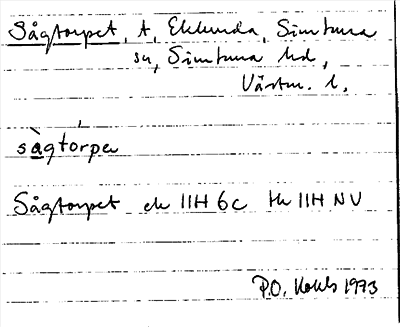 Sågtorpet, t, Eklunda, Simtuna
sn, Simtuna hd,
Västm. l.
sàgtórpe
Sågtorpet ek 11H 6c tk 11H NV
P.O. 1973